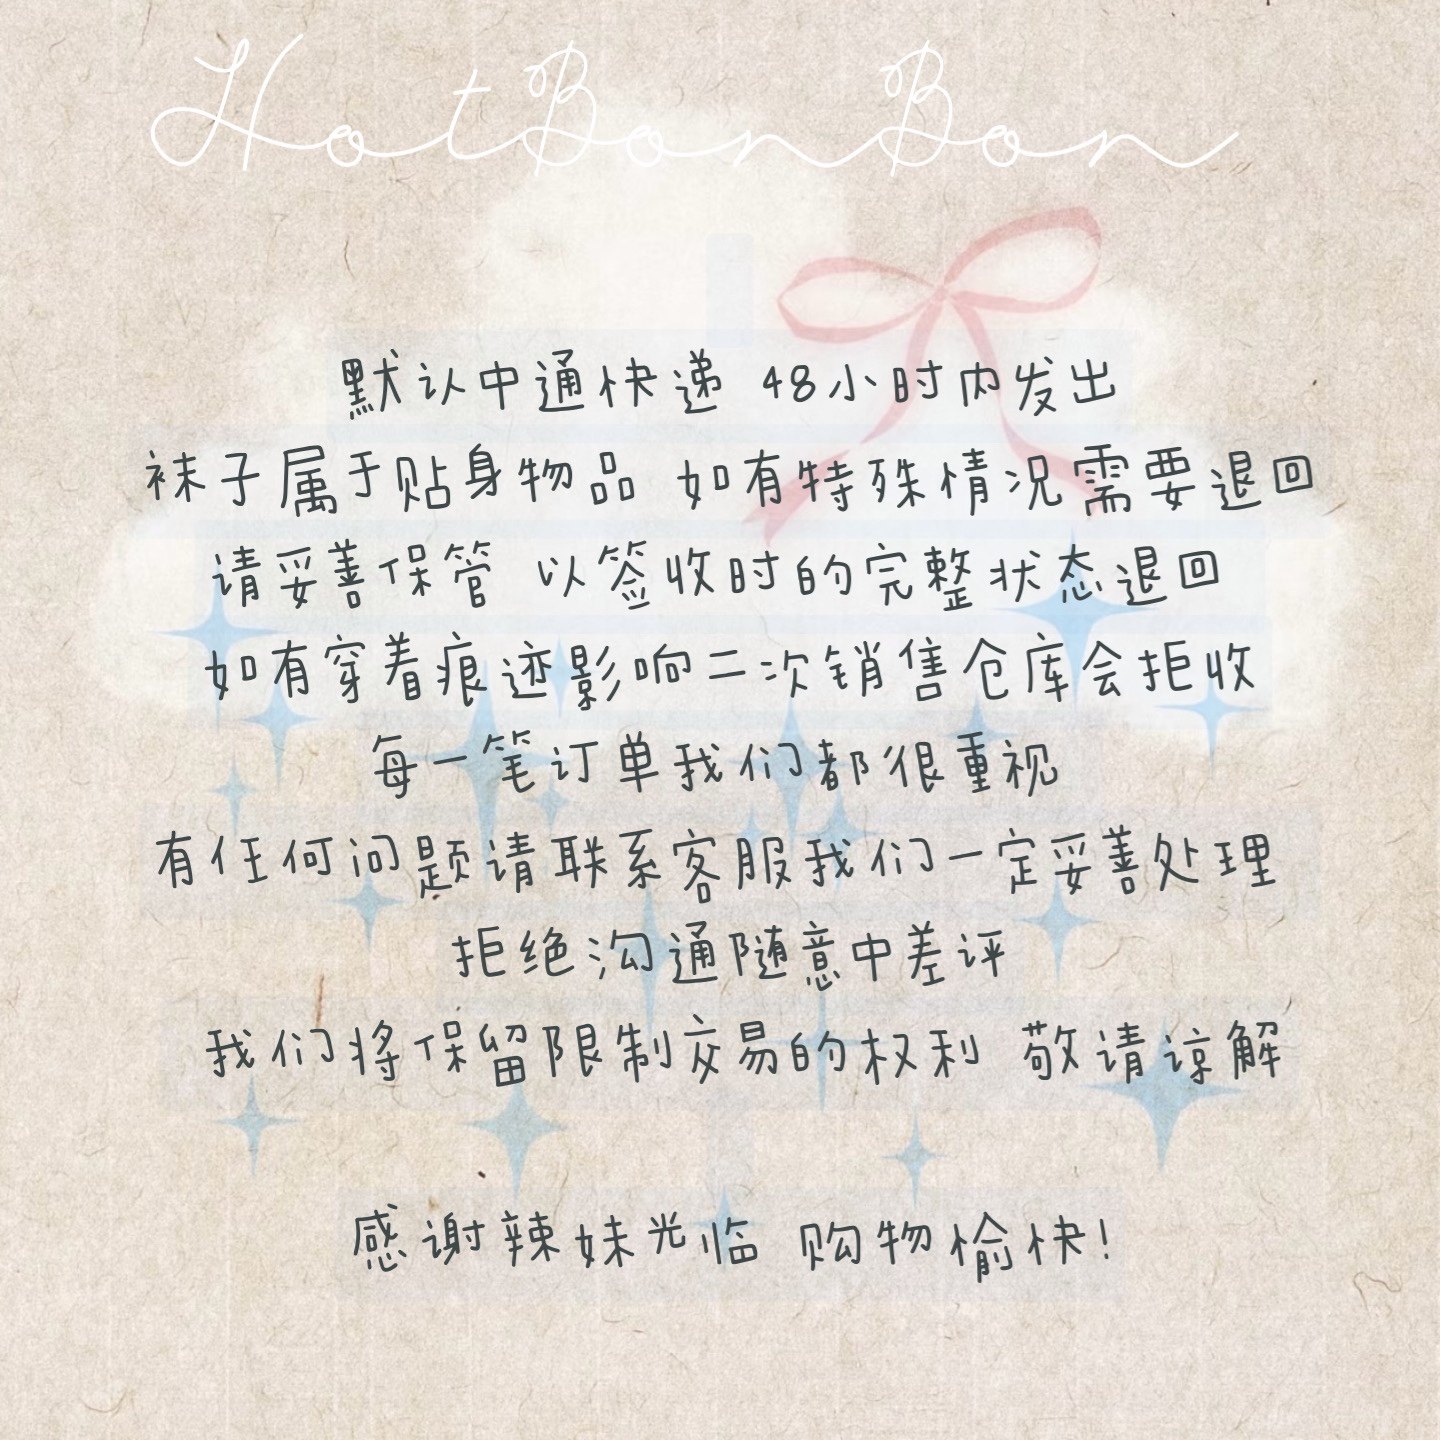 HotBonBon
默认中通快递 48小时内发出
袜子属于贴身物品 如有特殊情况需要退回
请妥善保管 以签收时的完整状态退回
如有穿着痕迹影响二次销售仓库会拒收
每一笔订单我们都很重视
有任何问题请联系客服我们一定妥善处理
拒绝沟通随意中差评
我们将保留限制交易的权利 敬请谅解
感谢辣妹光临 购物愉快!